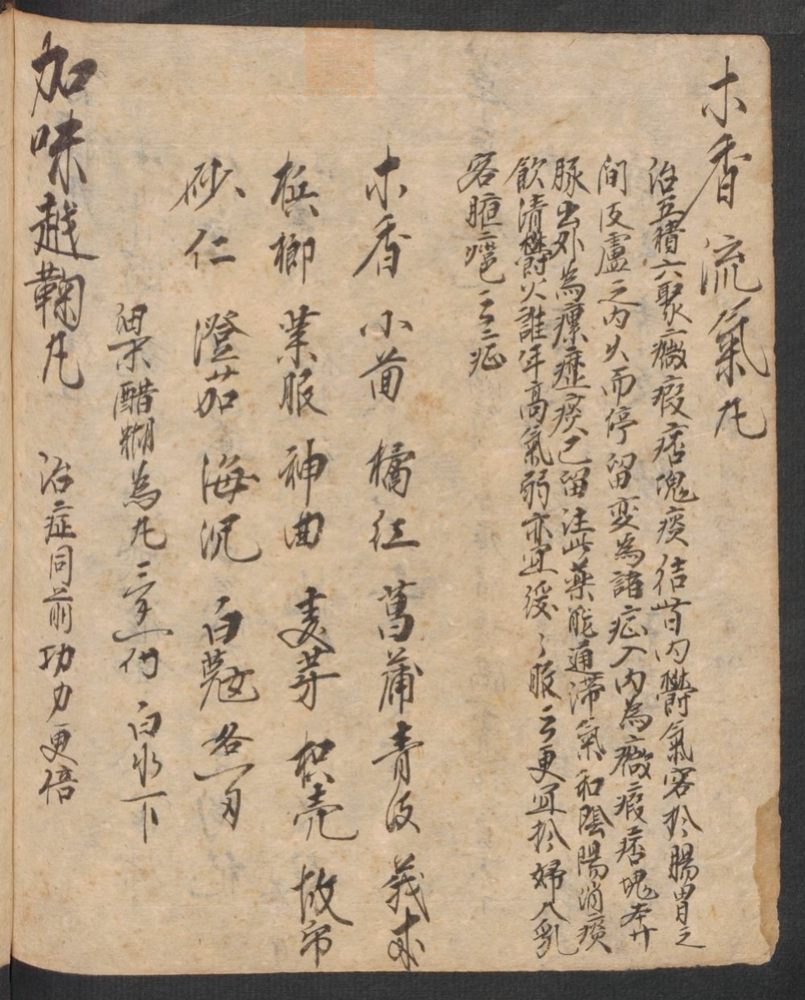 木香流氣丸
治五積六聚癥瘕痞塊痰结皆内鬱氣客於腸胃之
間皮膚之内久而停留变為諸症入内為癥瘕痞塊奔
豚出外為瘰癧痰留注此藥能通滯氣和陰陽消痰
飲清鬱火誰年高氣弱亦宜缓々服之更宜於婦人乳
之症
木香 小茴 橘红 菖蒲 青皮 莪朮
梹榔 菜服 神曲 麦芽 枳壳 故帋
砂仁 澄茄 海沉 白蔻 各一刃
醋糊為丸 白水下
加味越鞠丸 治症同前功力更倍